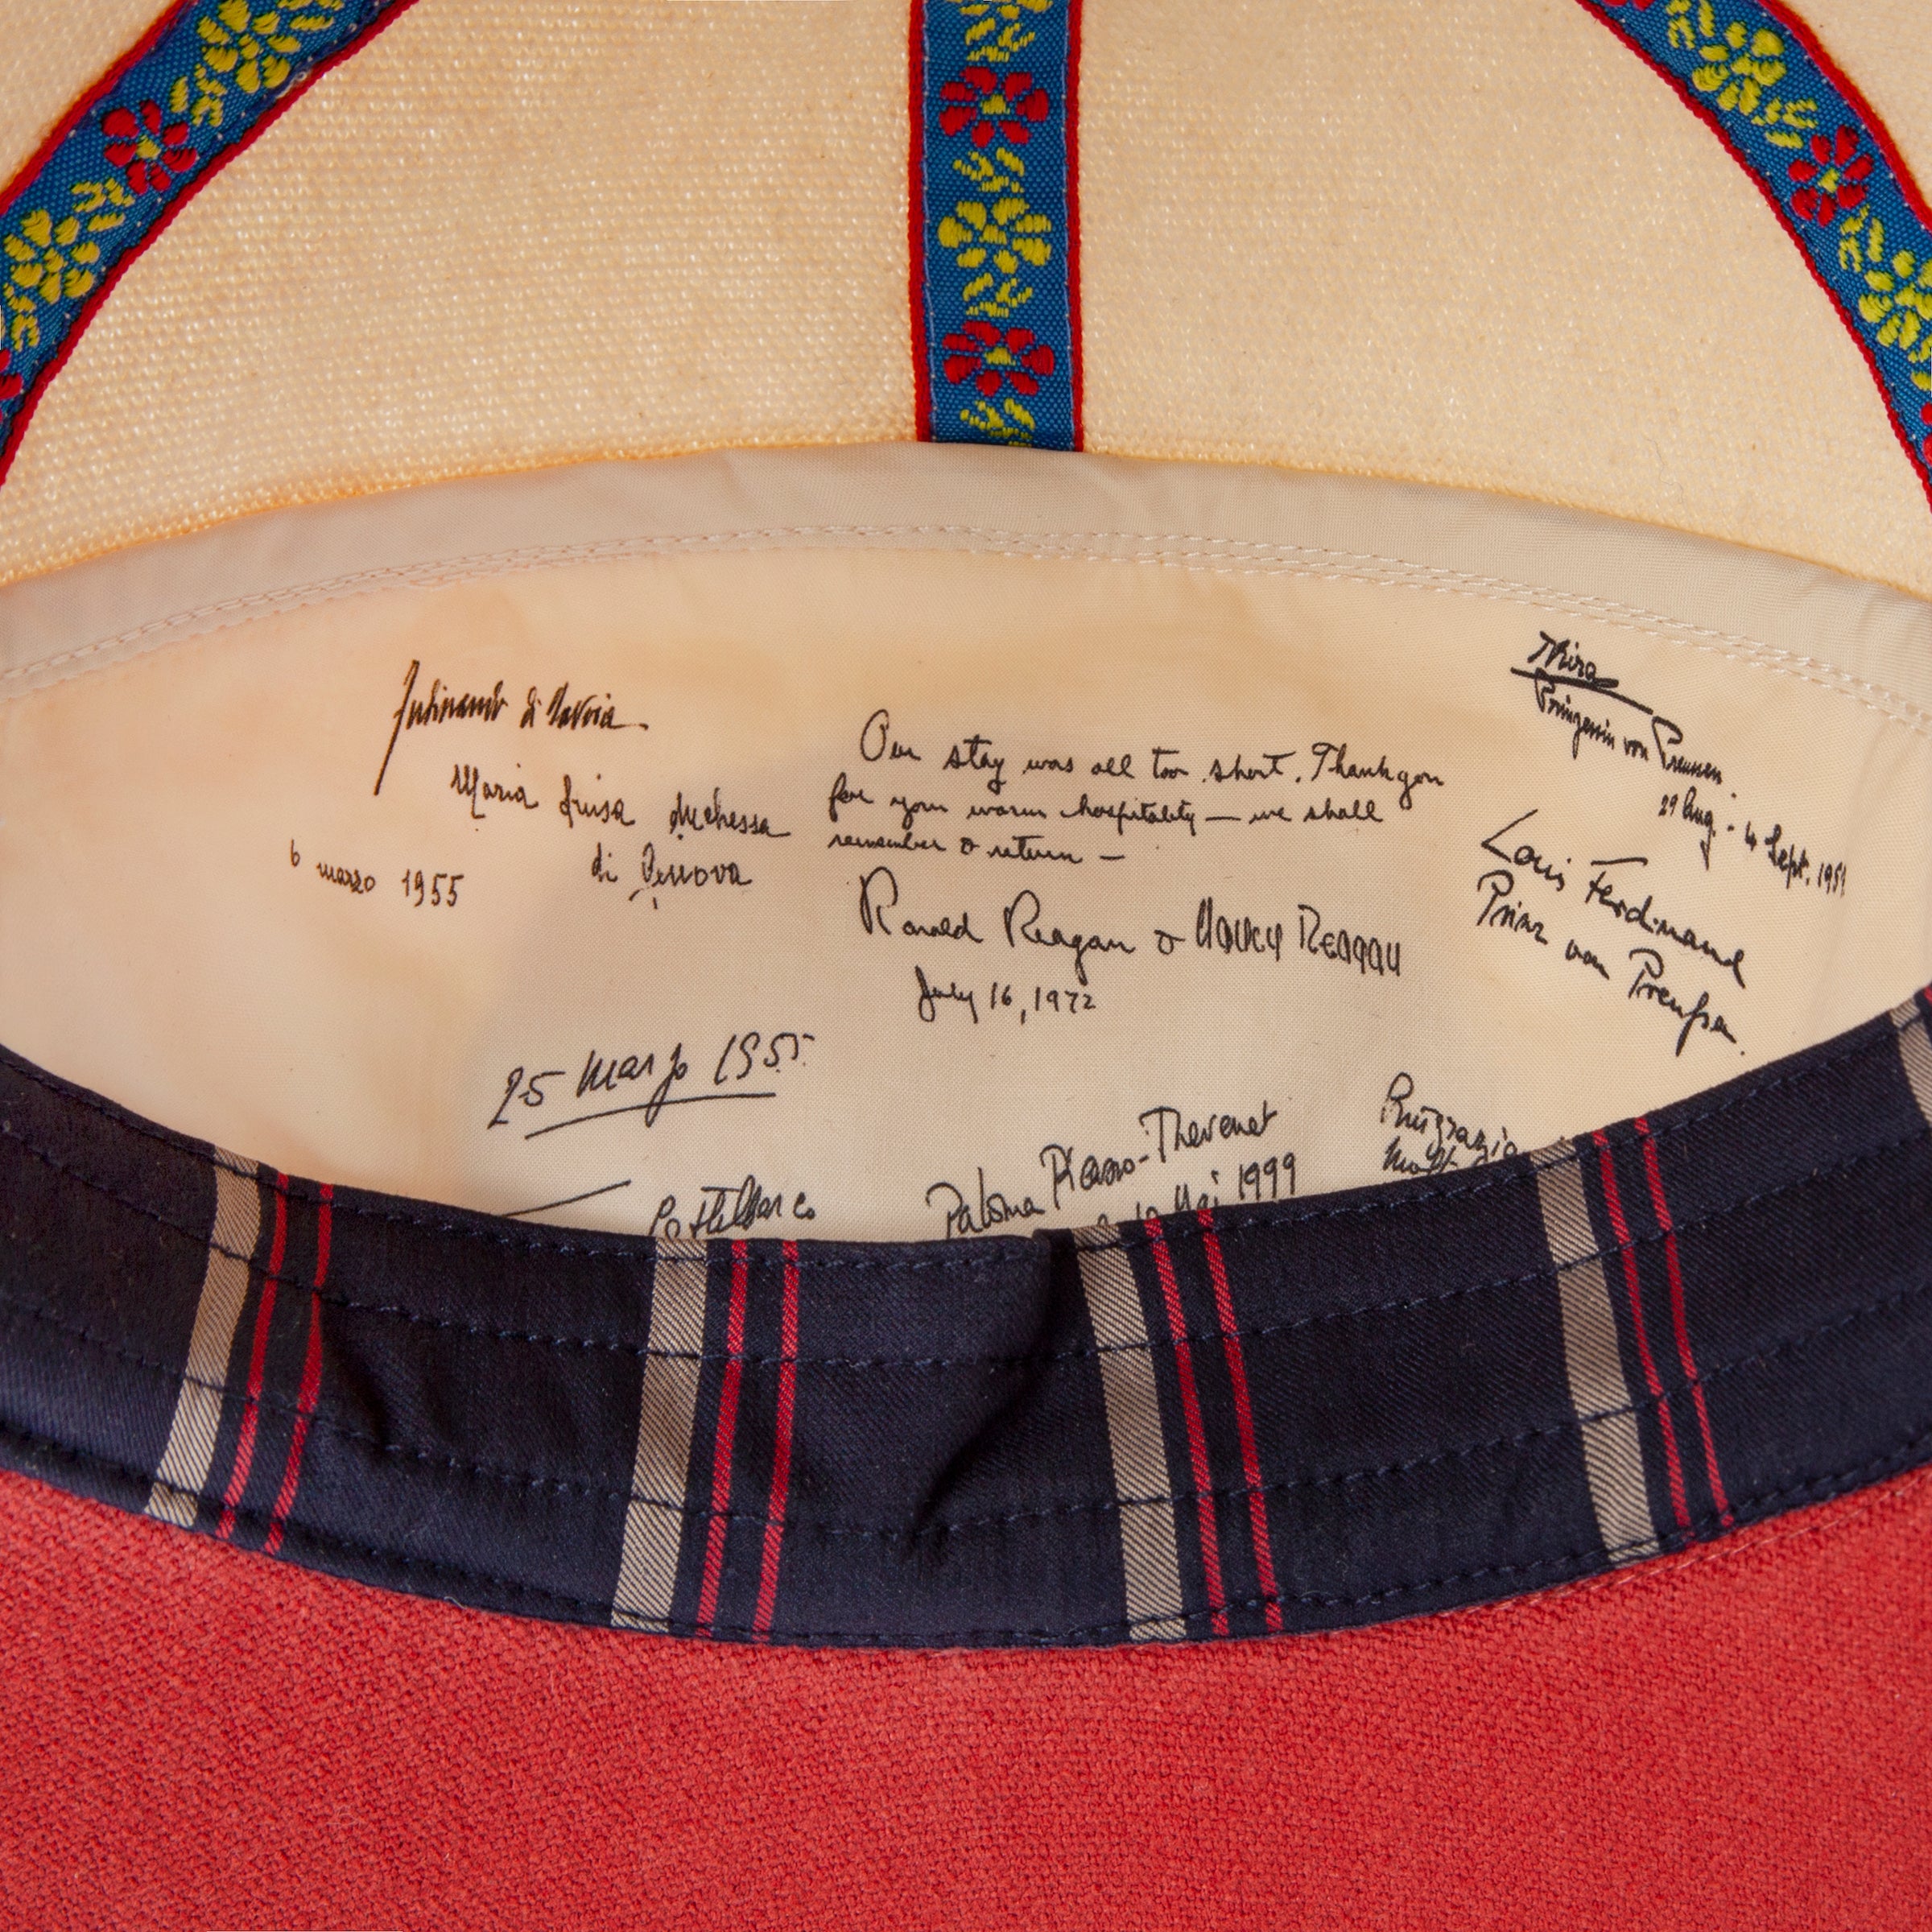 Ferdinando di Savoia
Maria Luisa duchessa
di Genova
6 marzo 1955
Our stay was all too short. Thank you
for your warm hospitality — we shall
remember & return —
Ronald Reagan & Nancy Reagan
July 16, 1972
Kira
Prinzessin von Preussen.
29 Aug. - 4 Sept. 1951
Louis Ferdinand
Prinz von Preußen.
25 marzo 1955
Paloma Picasso-Thevenet
Mai 1999
Ringrazio